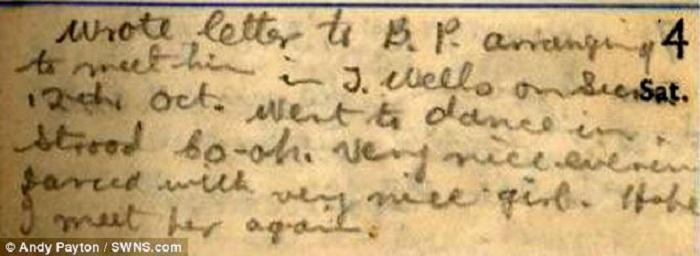 wrote letter to B. P. arranging 4
to meet him in T. Wells on Sun Sat.
12th Oct. Went to dance in
Strood Co-op. Very nice evening
danced with very nice girl. Hope
I meet her again.
© Andy Payton / SWNS.com